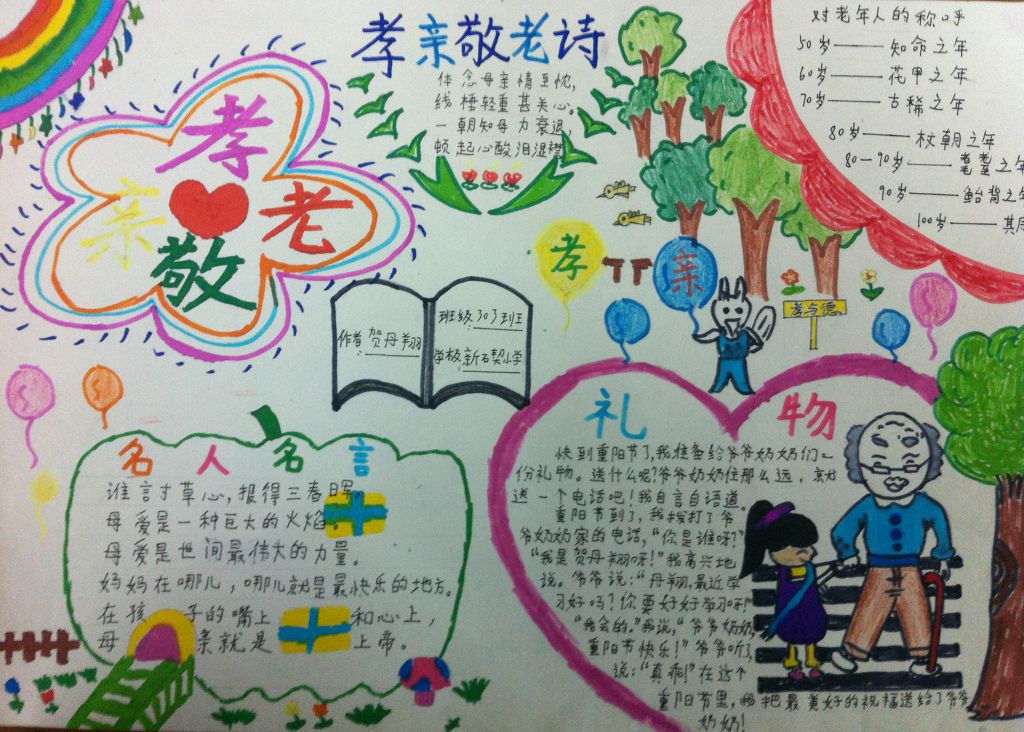 孝亲敬老诗
体念母亲情至忱,
线棰轻重甚关心。
一朝知母力衰退,
顿起心酸泪湿襟
孝
亲
老
敬
对老年人的称呼
50岁——知命之年
60岁——花甲之年
70岁——古稀之年
80岁——杖朝之年
80-90岁——耄耋之年
90岁——鲐背之年
100岁——其
孝
亲
孝与德
作者 贺丹翔
班级 303班
学校 新石契小学
名人名言
谁言寸草心,报得三春晖。
母爱是一种巨大的火焰。
母爱是世间最伟大的力量。
妈妈在哪儿,哪儿就是最快乐的地方。
在孩子的嘴上和心上,
母亲就是上帝。
礼物
快到重阳节了,我准备给爷爷奶奶们一
份礼物。送什么呢?爷爷奶奶住那么远,就
送一个电话吧!我自言自语道。
重阳节到了,我拨打了爷
爷奶奶家的电话,“你是谁呀?”
“我是贺丹翔呀!”我高兴地
说。爷爷说:“丹翔,最近学
习好吗?你要好好学习呀!”
“我会的。”我说,“爷爷奶奶,
重阳节快乐!”爷爷听了,
说:“真乖!”在这个
重阳节里,我把最美好的祝福送给了爷爷
奶奶!